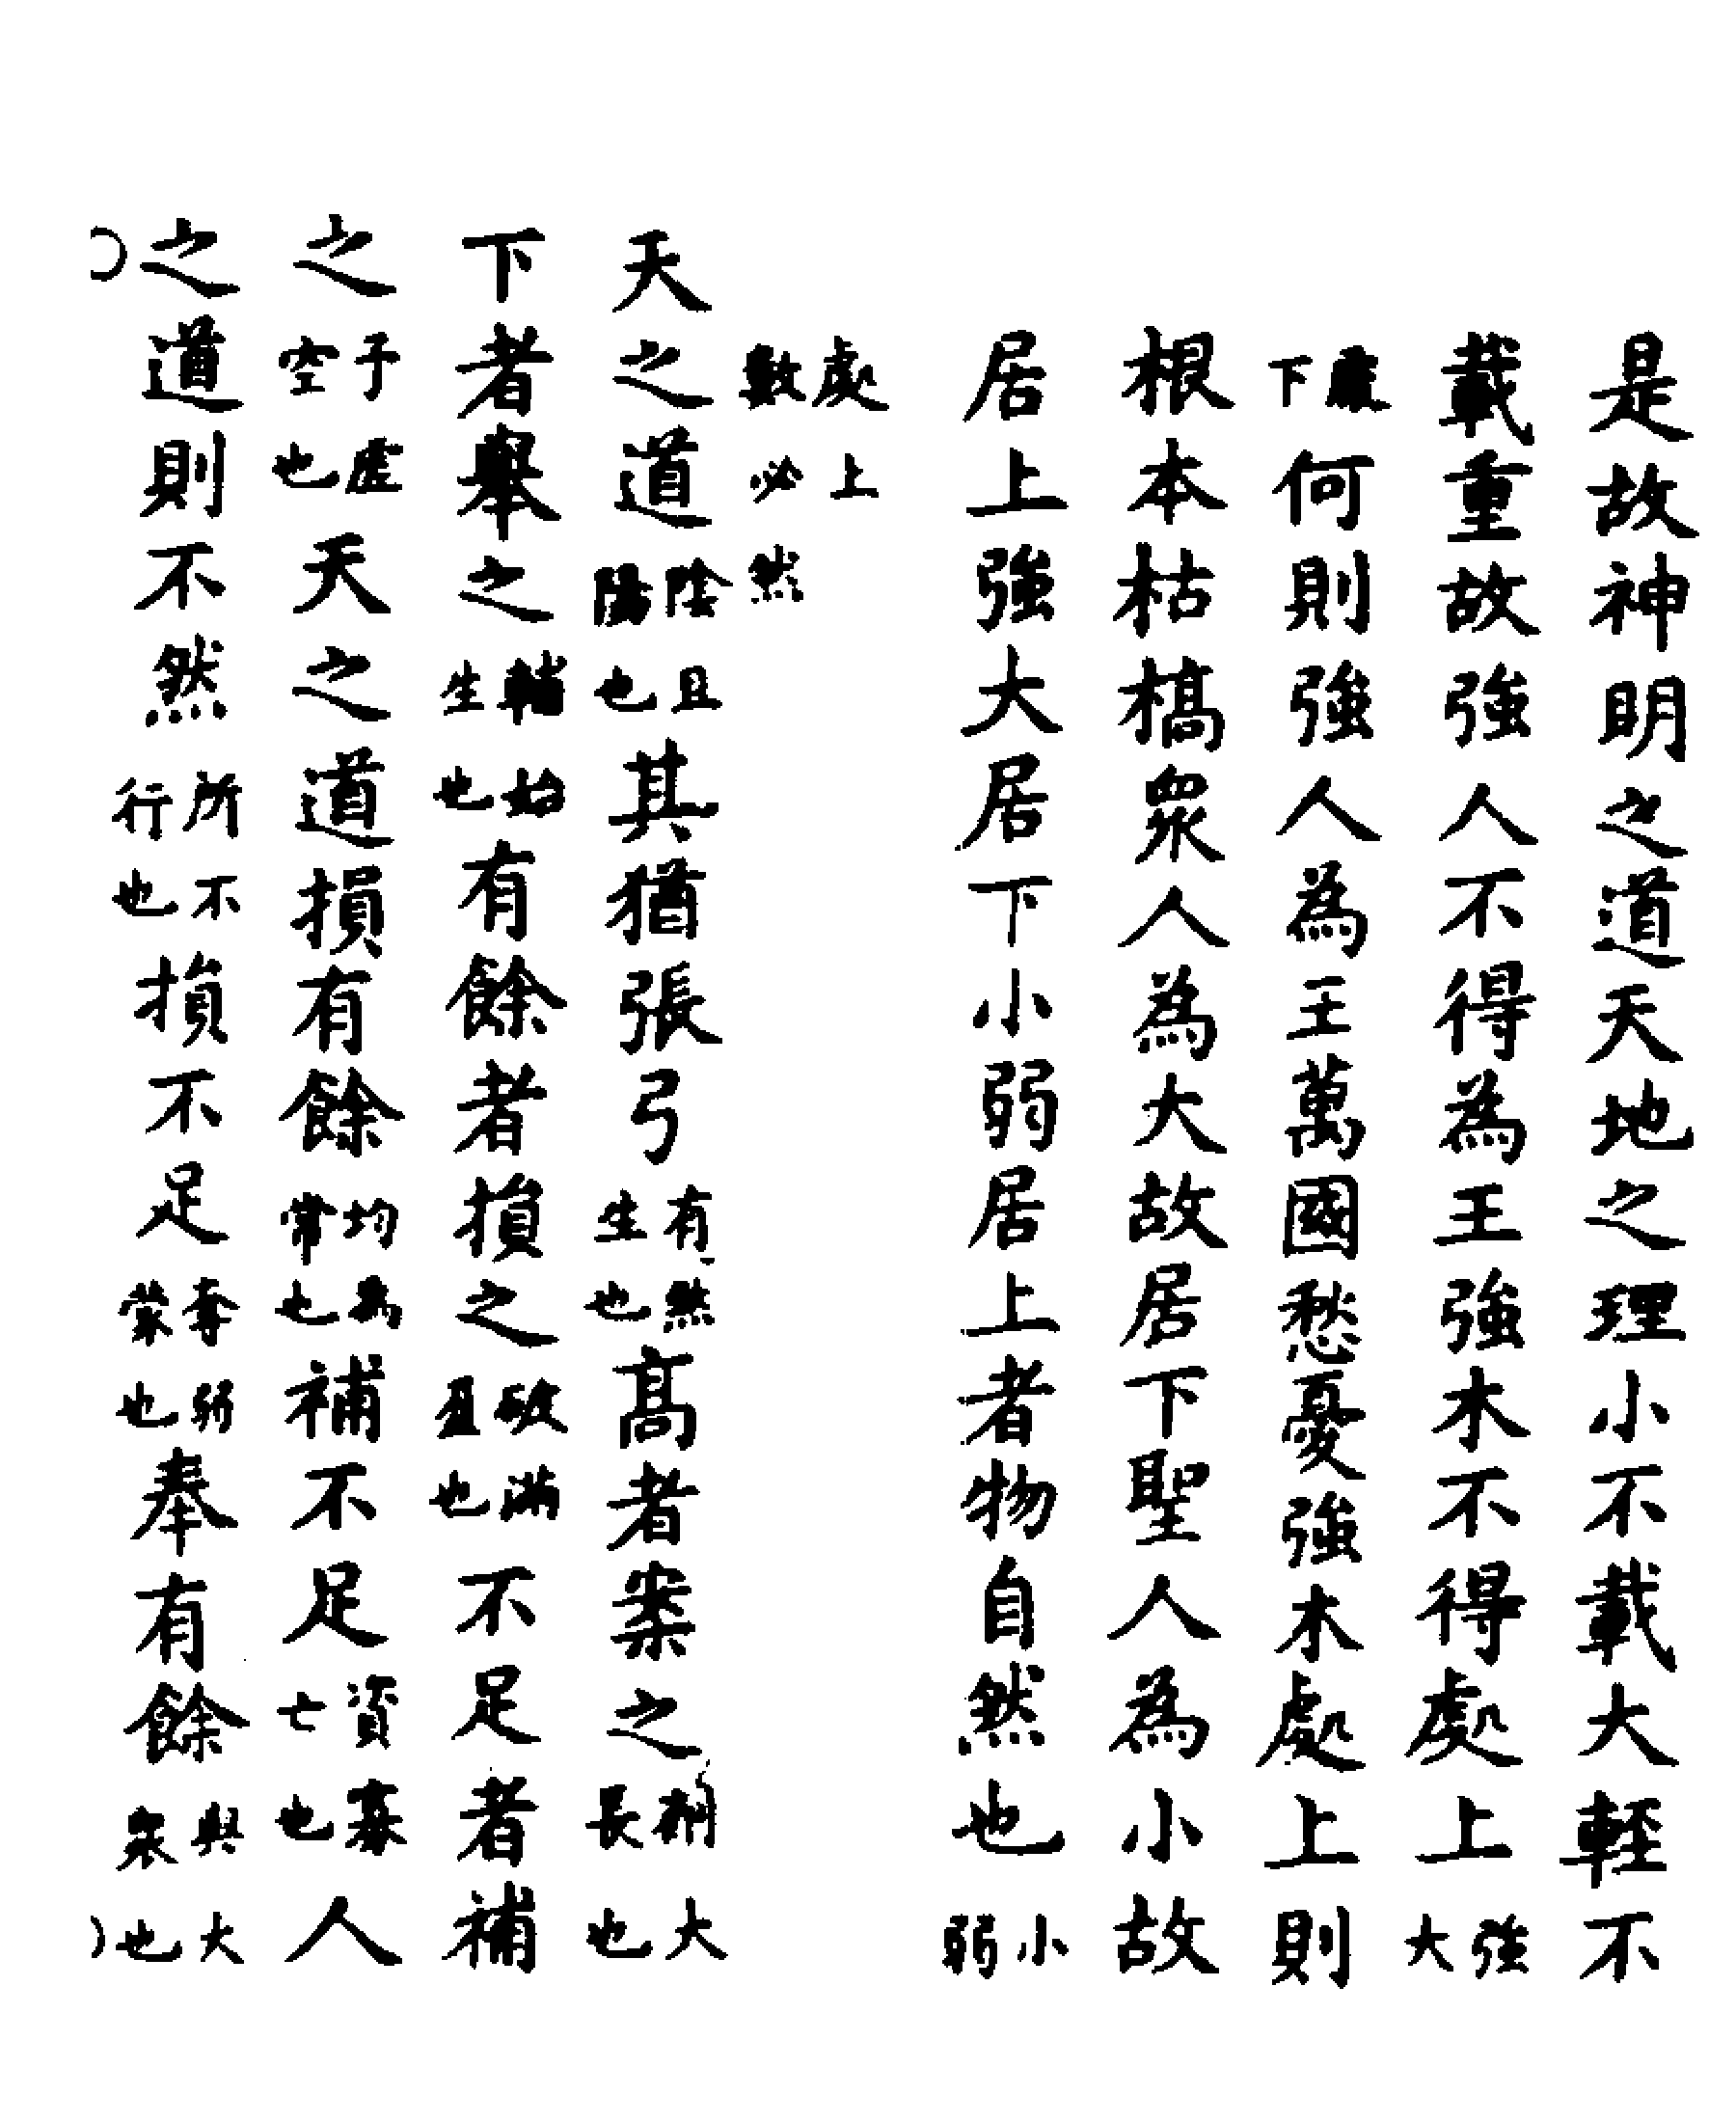 是故神明之道天地之理小不載大輕不
載重故強人不得為王強木不得處上強大
處下何則強人為王萬國愁憂強木處上則
根本枯槁眾人為大故居下聖人為小故
居上強大居下小弱居上者物自然也小弱
處上數必然
天之道陰且陽也其猶張弓有然生也高者案之稍大長也
下者舉之輔始生也有餘者損之破滿盈也不足者補
之予虛空也天之道損有餘均為常也補不足資寡亡也人
之道則不然所不行也損不足奪弱蒙也奉有餘與大眾也